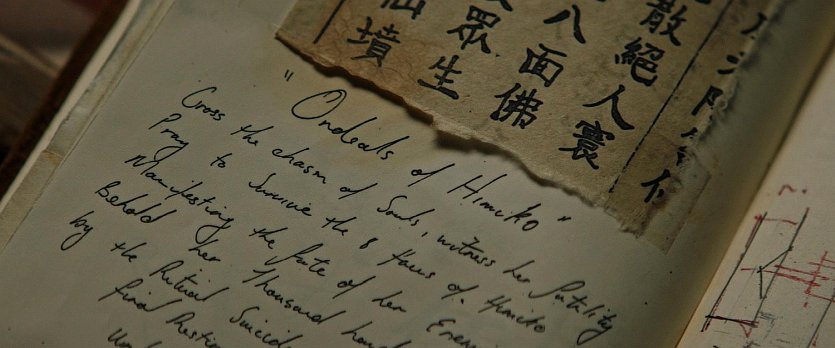 散絕人寰
八面佛
眾生
仙墳
"Ordeals of Himiko"
Cross the chasm of Souls, witness her futility
Pray to Survive the 8 faces of Himiko
Manifesting the fate of her
Behold her Thousand
by the Ritual
final